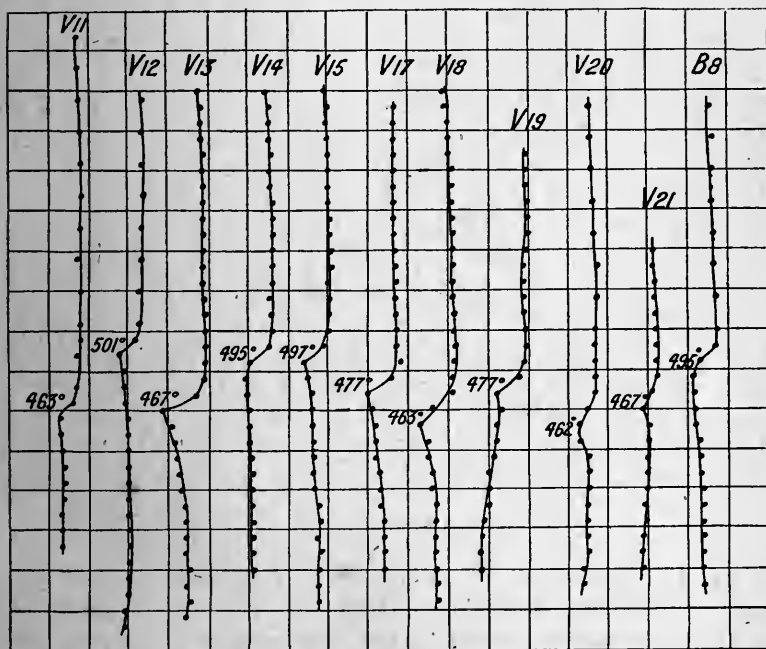 V11
V12 V13 V14 V15 V17 V18 V20 B8
V19
V21
501° 495° 497° 495°
463° 467° 477° 463° 477° 462° 467°